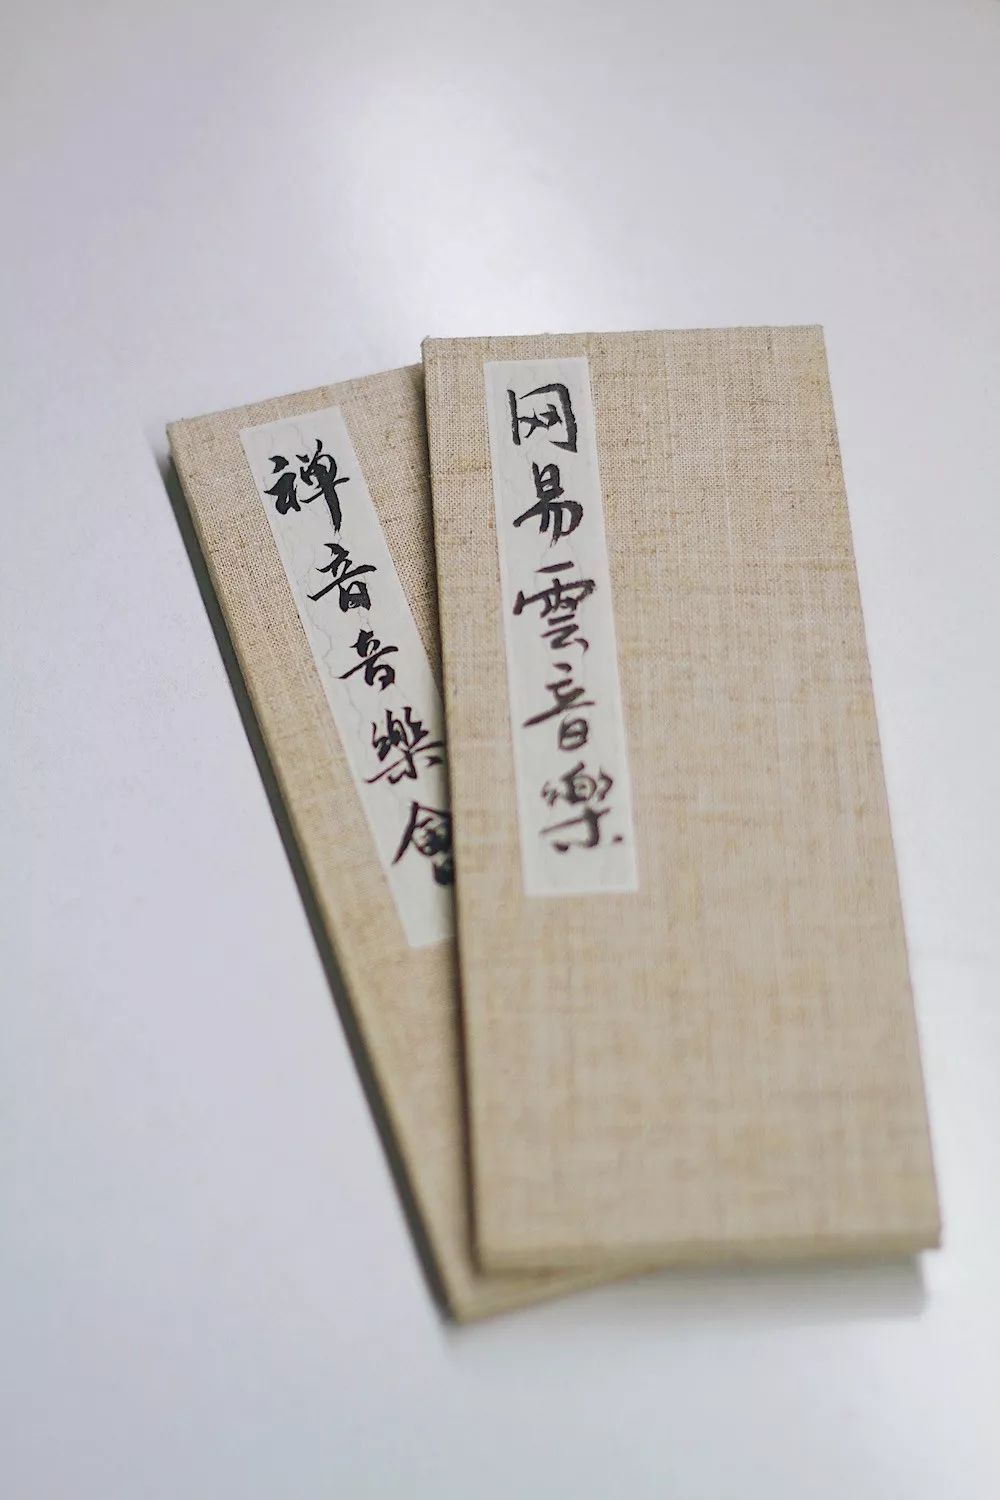 禅音音樂會
网易雲音樂